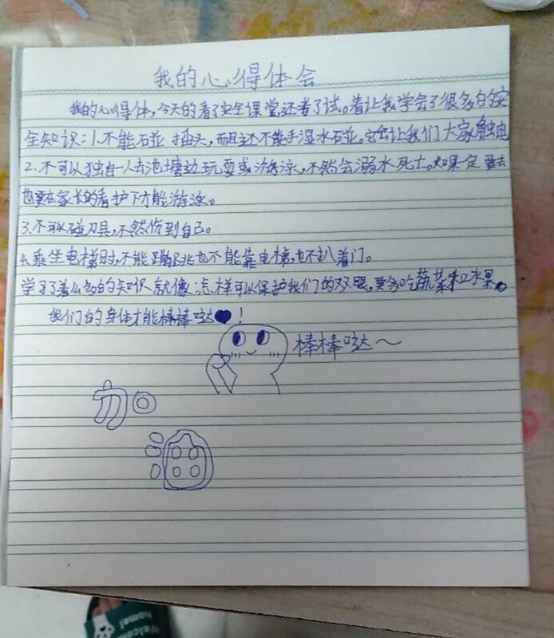 我的心得体会
我的心得体,今天的看了安全课堂,还考了试。着让我学会了很多的安
全知识:1.不能碰 插头,而且还不能手湿水碰。它会让我们大家触电
2.不可以独自一人去池塘边玩耍或游泳,不然会溺水死亡。如果一定要去
也要在家长的看护下才能游泳。
3.不可以碰刀具,不然伤到自己。
4.乘坐电梯时,不能蹦跳也不能靠电梯,也不扒着门。
学习了着么多的知识就像怎样可以保护我们的双眼,要多吃蔬菜和水果。
我们的身体才能棒棒哒!
棒棒哒~
加
油
Welcome
home!